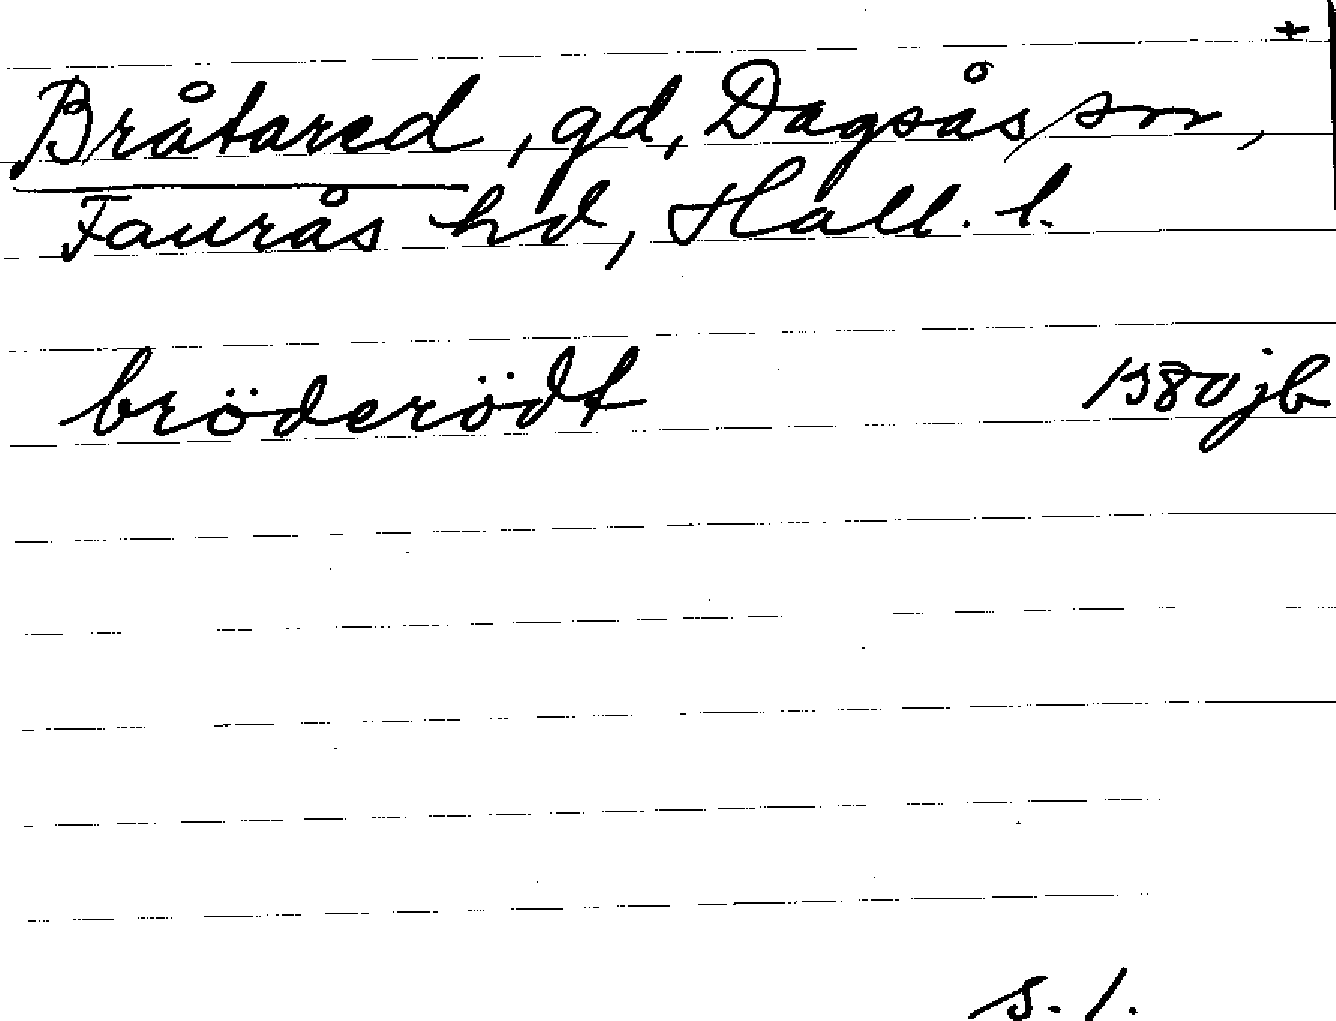 +
Bråtared, gd, Dagsås sn,
Faurås hd, Hall. l.
bröderödt 1580 jb
s. 1.